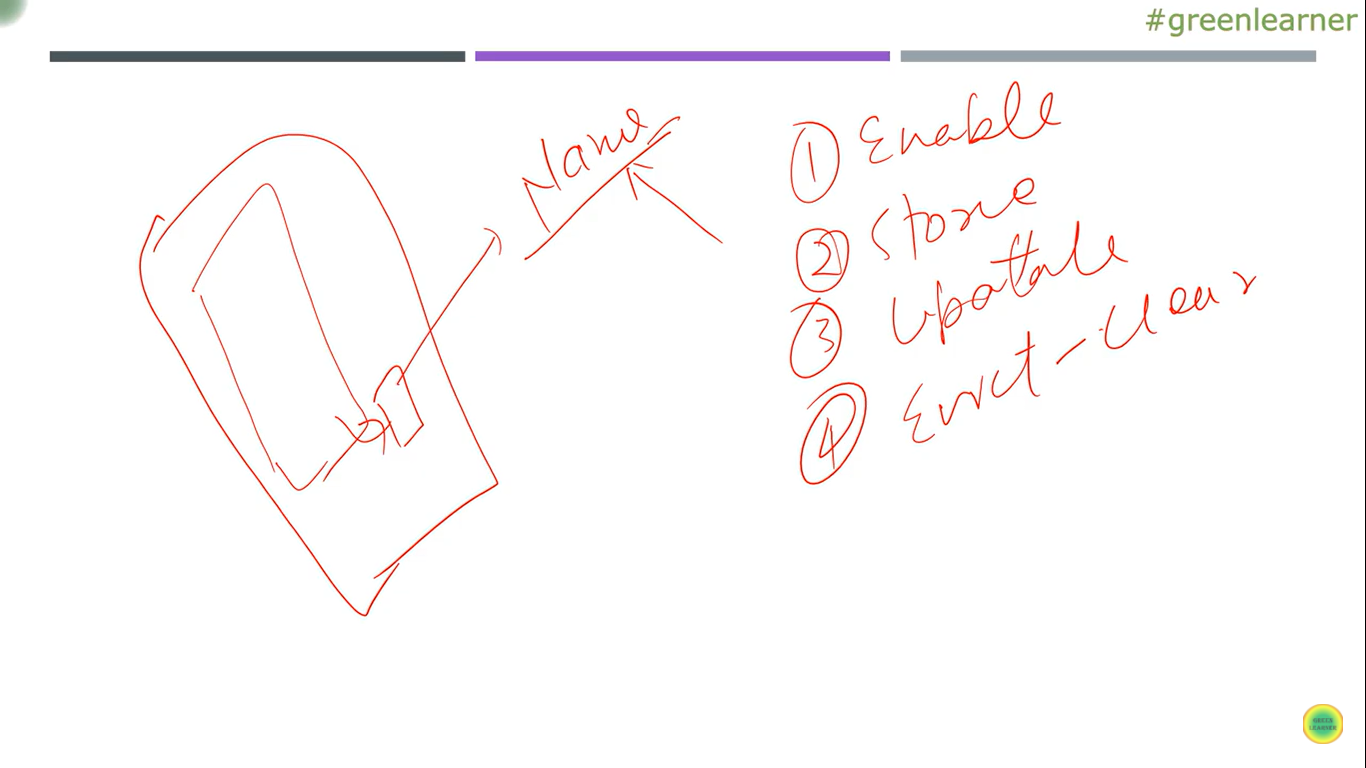 #greenlearner
Name
1 Enable
2 Store
3 Update
4 Evict - clear
GREEN
LEARNER